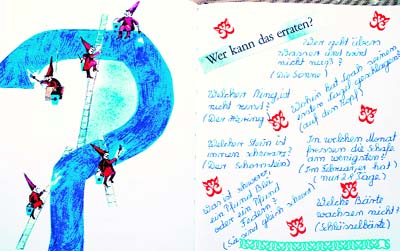 Wer kann das erraten?
Wer geht übers
Wasser und wird
nicht naß?
(Die Sonne)
Welcher Ring ist
nicht rund?
(Der Hering)
Wohin hat Noah seinen
ersten Nagel geschlagen?
(auf den Kopf)
Welcher Stein ist
immer schwarz?
(Der Schornstein)
In welchem Monat
fressen die Schafe
am wenigsten?
(Im Februar, er hat
nur 28 Tage)
Was ist schwerer,
ein Pfund Blei
oder ein Pfund
Federn?
(Sie sind gleich schwer)
Welche Bärte
wachsen nicht?
(Schlüsselbärte)